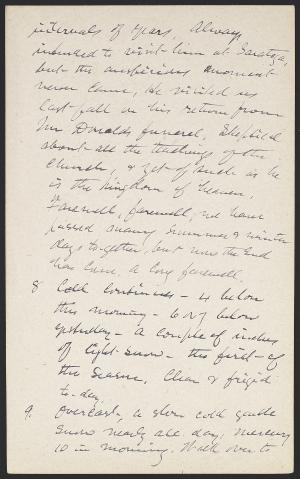 intervals of years. Always
intended to visit him at Saratoga,
but the auspicious moment
never came. He visited us
last fall on his return from
Mr Donalds funeral. Skeptical
about all the teachings of the
Church, & yet of such as he
is the kingdom of heaven.
Farewell, farewell, we have
passed many summer & winter
days together, but now the End
has come. A long farewell.
8 Cold continues – 4 below
this morning – 6 or 7 below
yesterday – A couple of inches
of light snow – the first – of
the season. Clear & frigid
to-day.
9. Overcast, a slow cold gentle
snow nearly all day; mercury
10 in morning. Walk over to